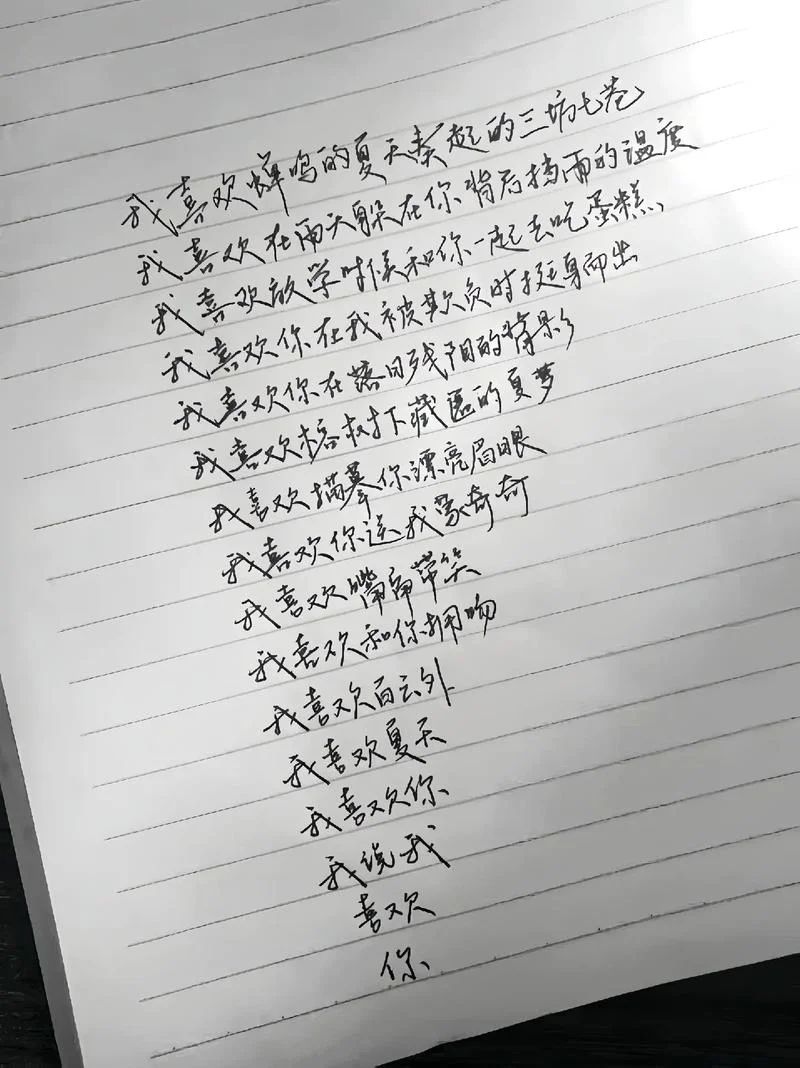 我喜欢蝉鸣的夏天奏起的三坊七巷
我喜欢在雨天躲在你背后挡雨的温度
我喜欢放学时候和你一起去吃蛋糕
我喜欢你在我被欺负时挺身而出
我喜欢你在落日残阳的背影
我喜欢榕树下藏匿的夏梦
我喜欢描摹你漂亮眉眼
我喜欢你送我家奇奇
我喜欢嘴角带笑
我喜欢和你拥吻
我喜欢白云外
我喜欢夏天
我喜欢你
我说我
喜欢
你